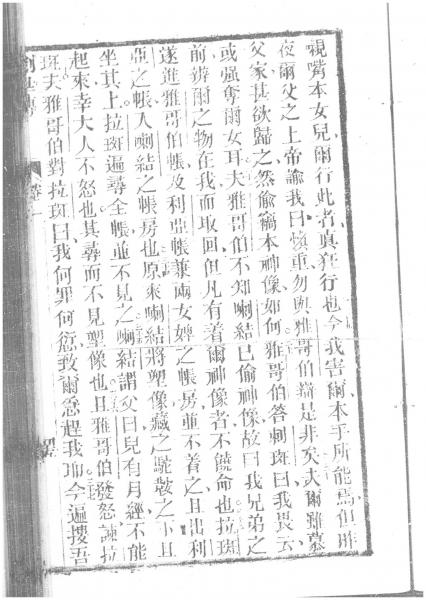 親嘴本女兒爾行此者真狂行也今我害爾本手所能為但昨
夜爾父之上帝諭我曰慎重勿與雅哥伯辯是非矣夫爾雖慕
父家甚欲歸之然偷竊本神像如何雅哥伯答剌班曰我畏云
或强奪爾女耳夫雅哥伯不知喇結已偷神像故曰我兄弟之
前辨爾之物在我而取回但凡有着爾神像者不饒命也拉班
遂進雅哥伯帳及利亞帳兼兩女婢之帳房並不着之且出利
亞之帳入喇結之帳房也原來喇結將塑像藏之駝鞍之下且
坐其上拉班遍尋全帳並不見之喇結謂父曰兒有月經不能
起來幸大人不怒也其尋而不見塑像也且雅哥伯發怒諫拉
班夫雅哥伯對拉班曰我何罪何愆致爾急趕我即今遍搜吾
創世傳